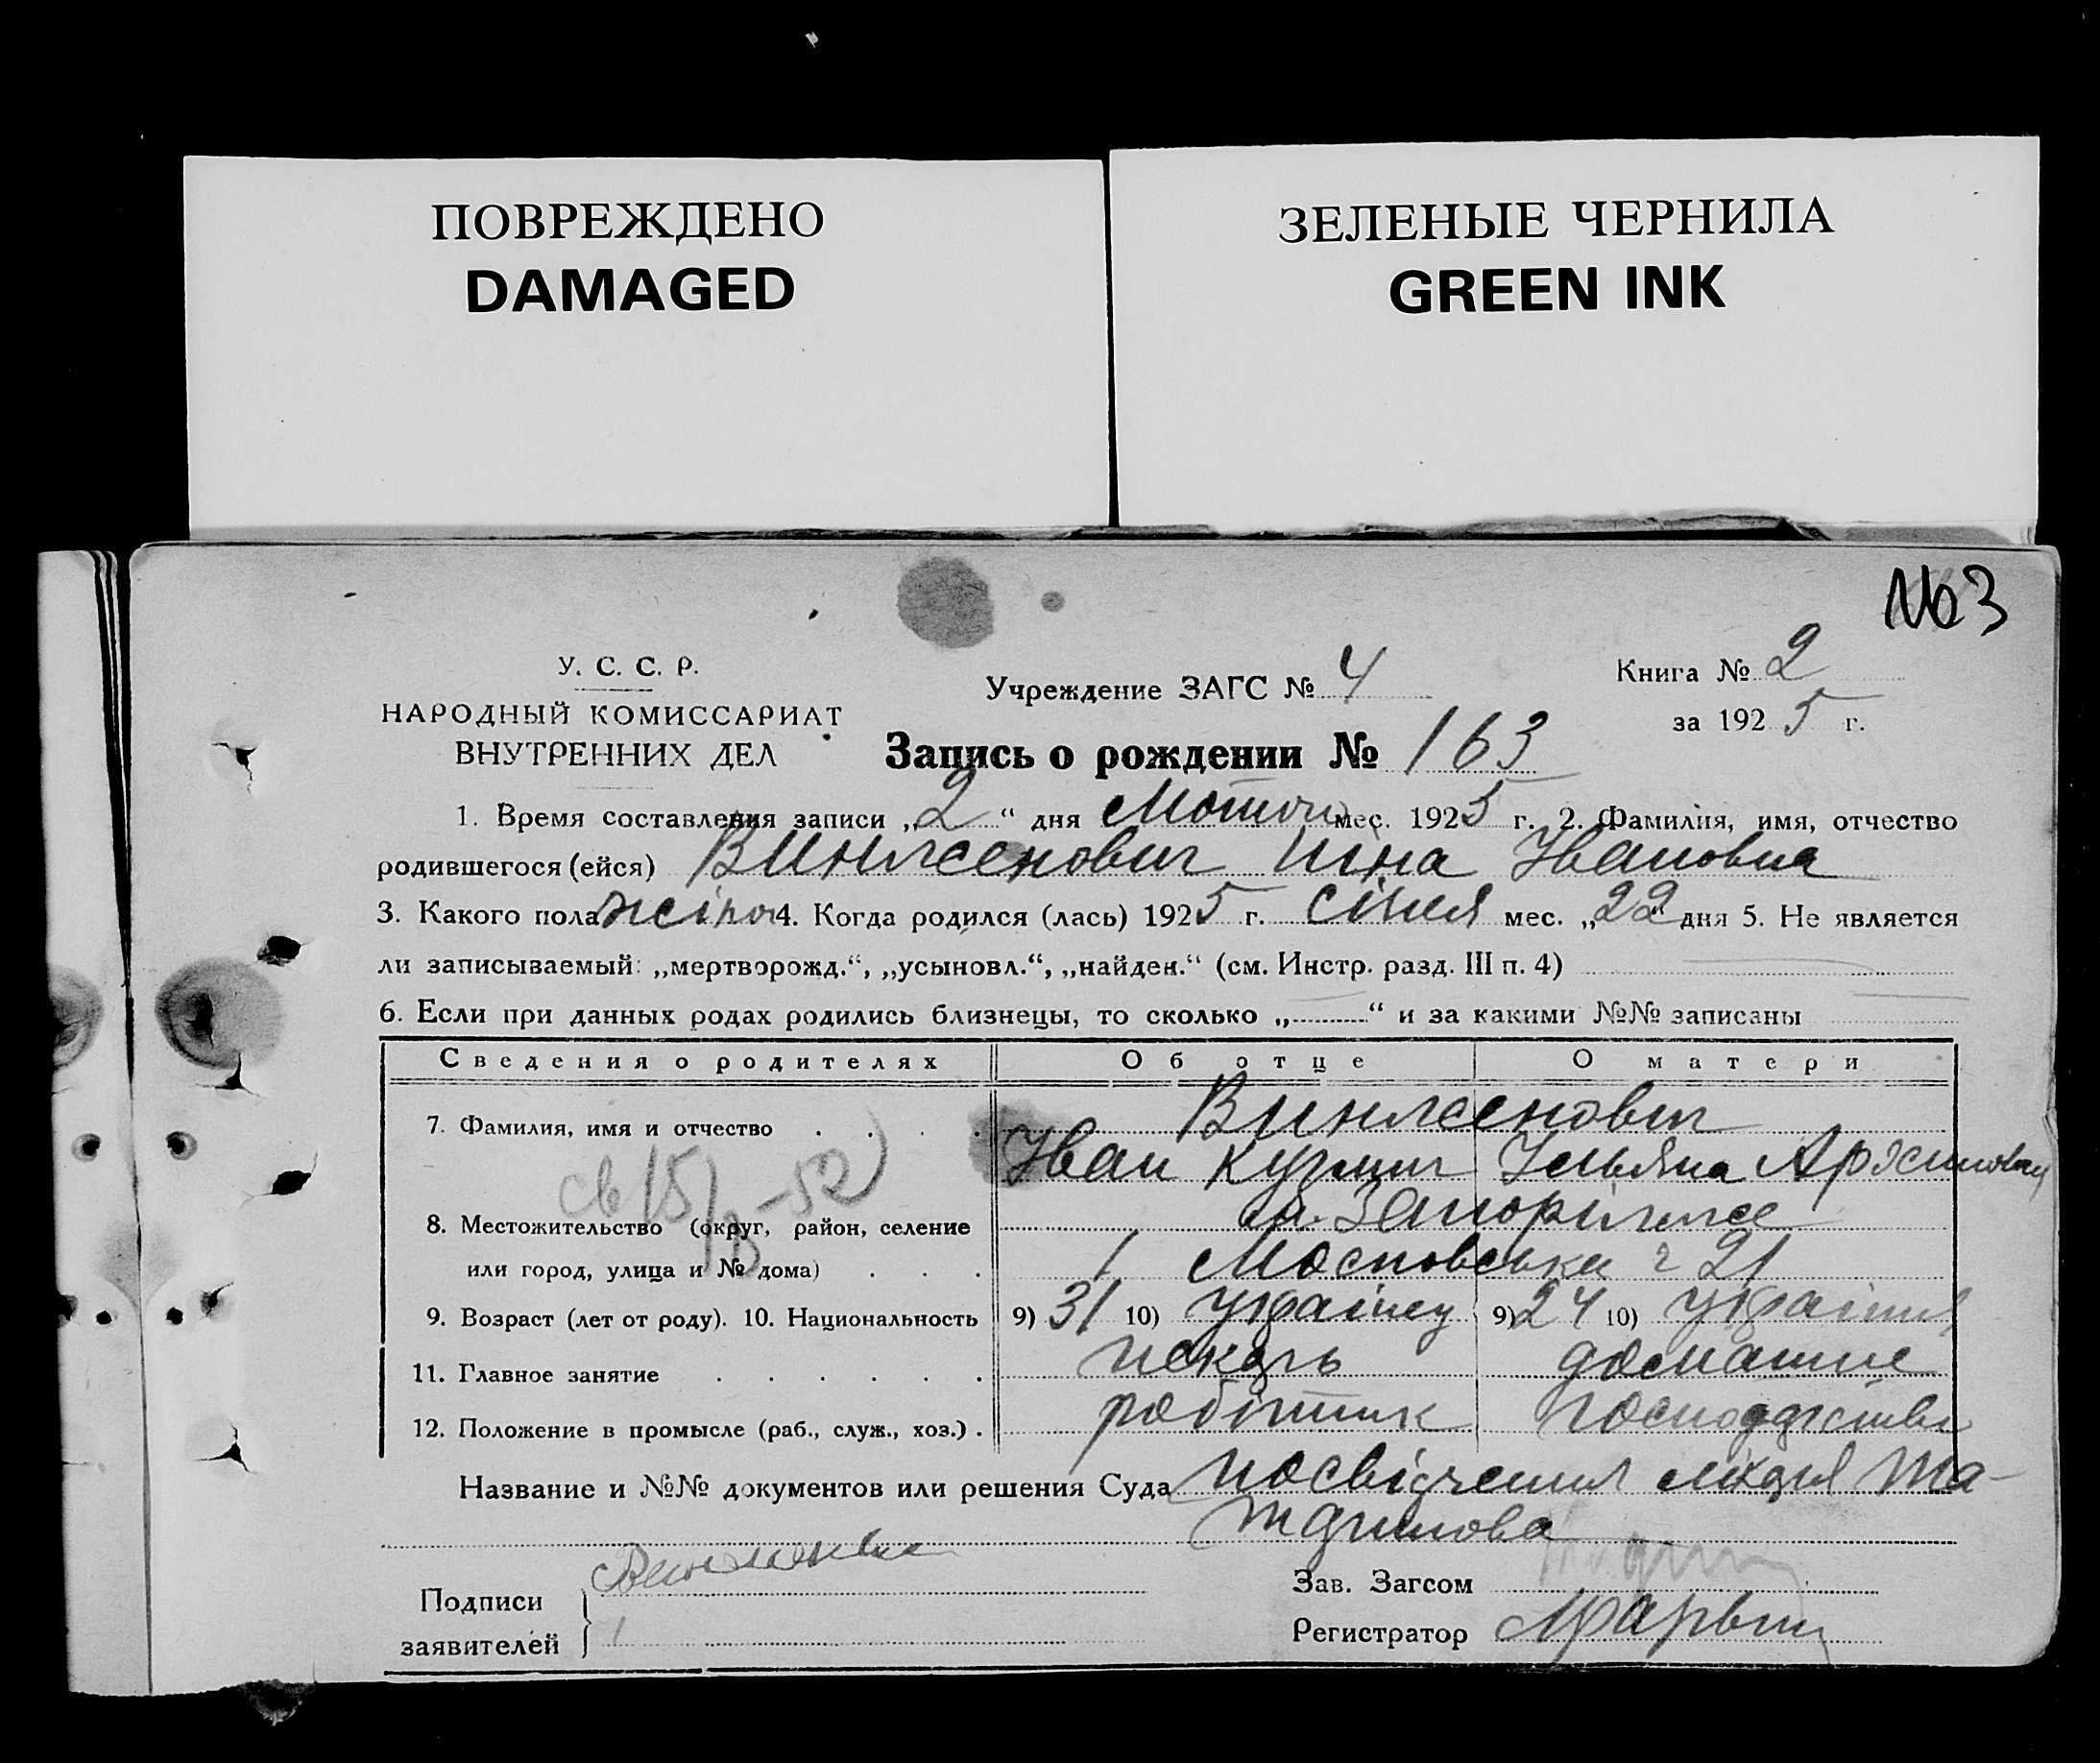 ПОВРЕЖДЕНО
DAMAGED
ЗЕЛЕНЫЕ ЧЕРНИЛА
GREEN INK
№ 3
У. С. С. Р.
НАРОДНЫЙ КОМИССАРИАТ
ВНУТРЕННИХ ДЕЛ
Учреждение ЗАГС № 4
Книга № 2
за 1925 г.
Запись о рождении № 163
1. Время составления записи „2“ дня мес. 1925 г. 2. Фамилия, имя, отчество
родившегося (ейся) Ивановна
3. Какого пола жіноч 4. Когда родился (лась) 1925 г. січня мес. „22 дня 5. Не является
ли записываемый: „мертворожд.“, „усыновл.“, „найден.“ (см. Инстр. разд. III п. 4)
6. Если при данных родах родились близнецы, то сколько „ “ и за какими №№ записаны
Сведения о родителях Об отце О матери
7. Фамилия, имя и отчество
Іван Ульяна
8. Местожительство (округ, район, селение м. Запоріжжє
или город, улица и № дома) Московська 21
9. Возраст (лет от роду). 10. Национальность 9) 31 10) українец 9) 24 10)
11. Главное занятие пекарь домашнє
12. Положение в промысле (раб., служ., хоз.) робітник господарство
Название и №№ документов или решения Суда посвідчення
Подписи
заявителей
Зав. Загсом
Регистратор